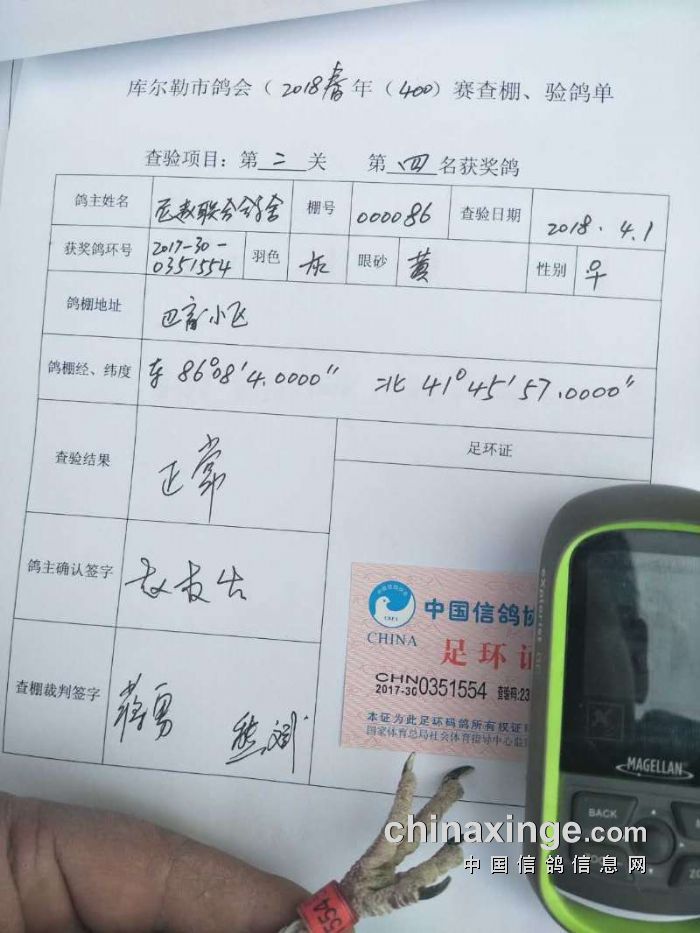 库尔勒市鸽会（2018春年（400）赛查棚、验鸽单
查验项目：第二关 第四名获奖鸽
鸽主姓名 联合鸽舍 棚号 000086 查验日期 2018.4.1
获奖鸽环号 2017-30-0351554 羽色 灰 眼砂 黄 性别 早
鸽棚地址
鸽棚经、纬度 东 86°08′4.0000″ 北 41°45′57.0000″
查验结果 正常
足环证
鸽主确认签字
查棚裁判签字 蒋勇 熊斌
中国信鸽协
CHINA
足环证
CHN
2017-30 0351554 查验码:23
本证为此足环码鸽所有权证
国家体育总局社会体育指导中心监
eXplorist
MAGELLAN
BACK
ZO
chinaxinge.com
中国信鸽信息网
1554